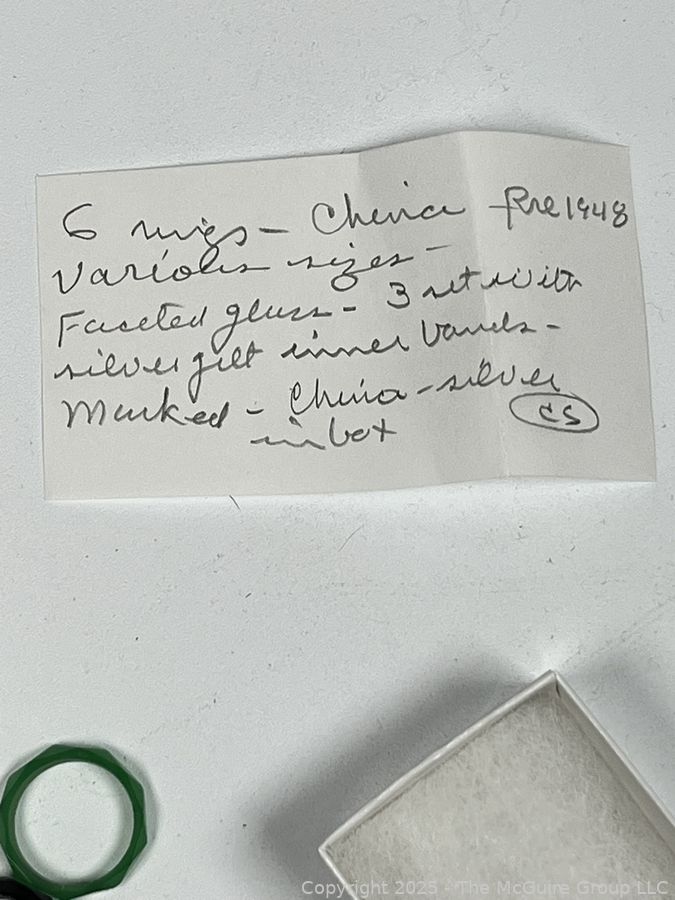 6 rings - China Pre 1948
various sizes -
Faceted glass - 3 set with
silver gilt inner bands -
Marked - China - silver
in box CS
Copyright 2025 - The McGuire Group LLC